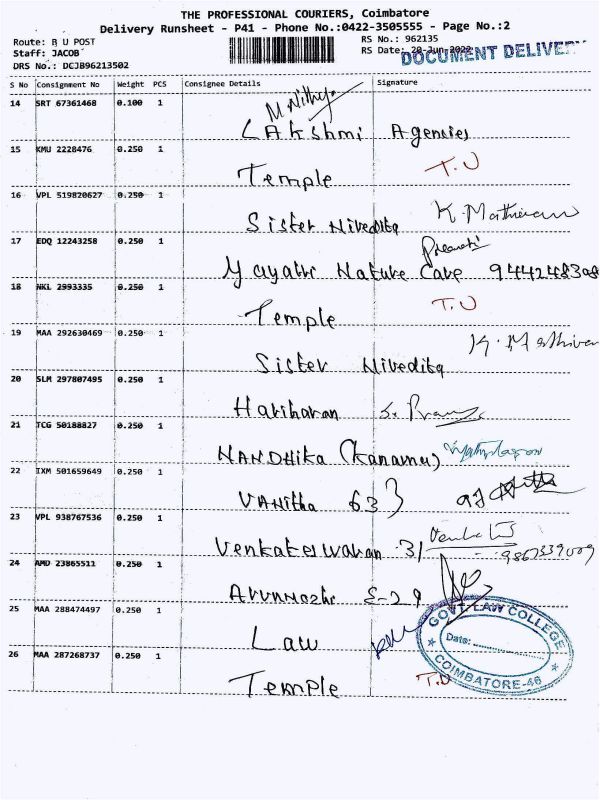 THE PROFESSIONAL COURIERS, Coimbatore
Delivery Runsheet - P41 - Phone No.:0422-3505555 - Page No.:2
Route: B U POST
RS No.: 962135
Staff: JACOB
RS Date: 20-Jun-2022
DOCUMENT DELIVERY
DRS No.: DCJB96213502
S No Consignment No Weight PCS Consignee Details Signature
14 SRT 67361468 0.100 1
M Nithya
LAkshmi Agencies
15 KMU 2228476 0.250 1
Temple T.U
16 VPL 519820627 0.250 1
Sister Nivedita K. Mathivan
17 EDQ 12243258 0.250 1
Gayathri Nature Care
18 NKL 2993335 0.250 1
Temple T.U
19 MAA 292630469 0.250 1
Sister Nivedita K. Mathivan
20 SLM 297807495 0.250 1
Hariharan
21 TCG 50188827 0.250 1
NANDHika
22 IXM 501659649 0.250 1
VANitha 63
23 VPL 938767536 0.250 1
Venkateswaran 31
24 AMD 23865511 0.250 1
S-29
25 MAA 288474497 0.250 1
Law
GOVT. LAW COLLEGE
Date:
COIMBATORE-46
26 MAA 287268737 0.250 1
Temple T.U